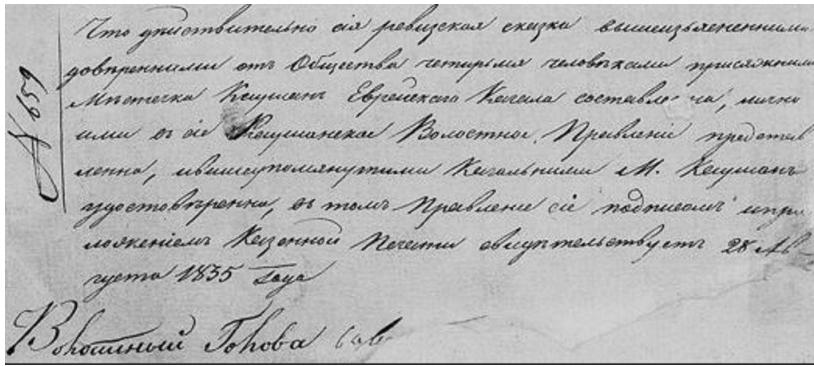 № 659
Что дѣйствительно сія ревизская сказка вышеизъясненними
довѣренними отъ Общества четырмя человѣками присяжними
Мѣстечка Каушанъ Еврейскаго Кагала составлена, лично
ими въ сіе Каушанское Волостное Правленіе представ
ленна, и вышеупомянутими Кагальними М. Каушанъ
удостовѣренна, въ томъ Правленіе сіе подписомъ и при
ложеніемъ Казенной Печати свидѣтельствуетъ 28 Ав
густа 1835 Года
Волостный Голова